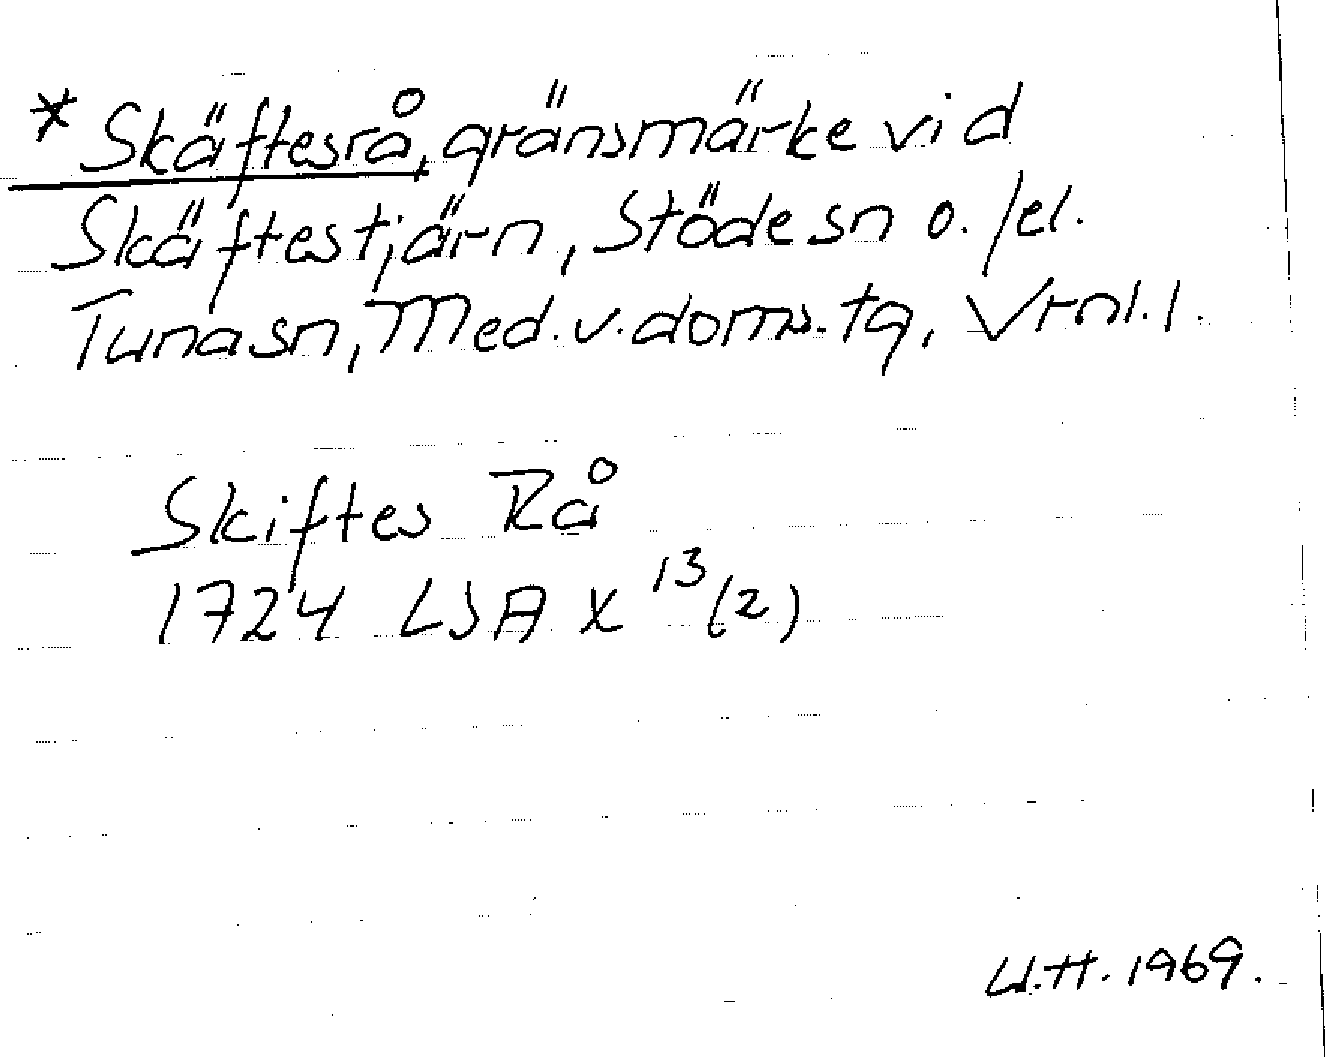 * Skäftesrå, gränsmärke vid
Skäftestjärn, Stöde sn o./el.
Tuna sn, Med. v. doms. tg, Vrnl. l.
Skiftes Rå
1724 LSA X 13 (2)
U.H. 1969.